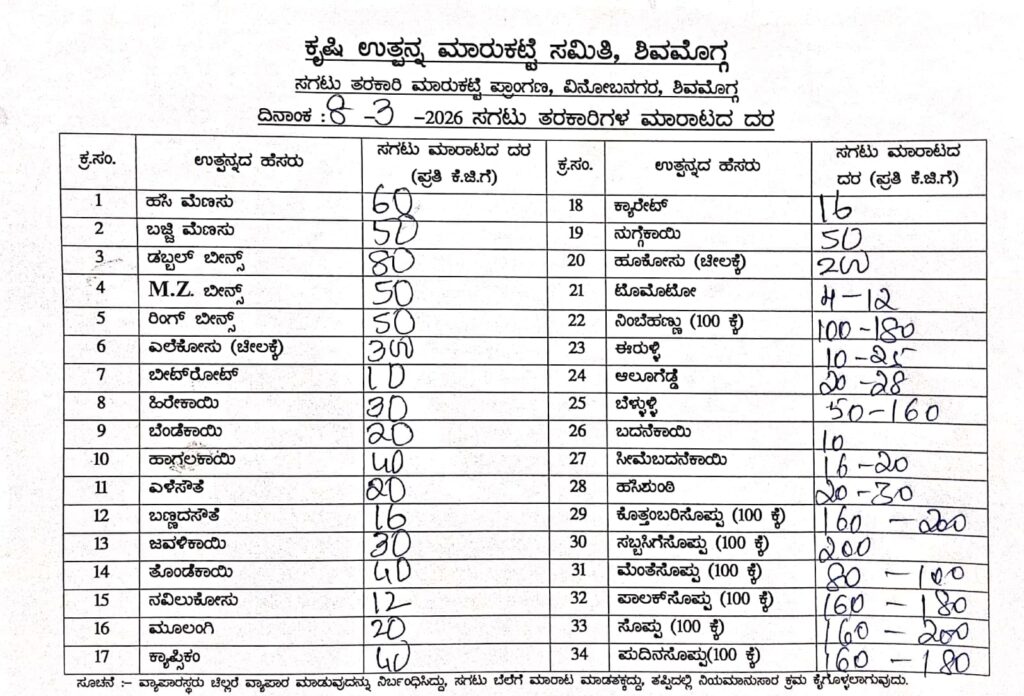 ಕೃಷಿ ಉತ್ಪನ್ನ ಮಾರುಕಟ್ಟೆ ಸಮಿತಿ, ಶಿವಮೊಗ್ಗ
ಸಗಟು ತರಕಾರಿ ಮಾರುಕಟ್ಟೆ ಪ್ರಾಂಗಣ, ವಿನೋಬನಗರ, ಶಿವಮೊಗ್ಗ
ದಿನಾಂಕ : 8 -3 -2026 ಸಗಟು ತರಕಾರಿಗಳ ಮಾರಾಟದ ದರ
ಕ್ರ.ಸಂ. ಉತ್ಪನ್ನದ ಹೆಸರು ಸಗಟು ಮಾರಾಟದ ದರ (ಪ್ರತಿ ಕೆ.ಜಿ.ಗೆ) ಕ್ರ.ಸಂ. ಉತ್ಪನ್ನದ ಹೆಸರು ಸಗಟು ಮಾರಾಟದ ದರ (ಪ್ರತಿ ಕೆ.ಜಿ.ಗೆ)
1 ಹಸಿ ಮೆಣಸು 60 18 ಕ್ಯಾರೇಟ್ 16
2 ಬಜ್ಜಿ ಮೆಣಸು 50 19 ನುಗ್ಗೆಕಾಯಿ 50
3 ಡಬ್ಬಲ್ ಬೀನ್ಸ್ 80 20 ಹೂಕೋಸು (ಚೀಲಕ್ಕೆ) 200
4 M.Z. ಬೀನ್ಸ್ 50 21 ಟೊಮೊಟೋ 4-12
5 ರಿಂಗ್ ಬೀನ್ಸ್ 50 22 ನಿಂಬೆಹಣ್ಣು (100 ಕ್ಕೆ) 100-180
6 ಎಲೆಕೋಸು (ಚೀಲಕ್ಕೆ) 300 23 ಈರುಳ್ಳಿ 10-25
7 ಬೀಟ್‌ರೋಟ್ 10 24 ಆಲೂಗೆಡ್ಡೆ 20-28
8 ಹಿರೇಕಾಯಿ 30 25 ಬೆಳ್ಳುಳ್ಳಿ 50-160
9 ಬೆಂಡೆಕಾಯಿ 20 26 ಬದನೆಕಾಯಿ 10
10 ಹಾಗಲಕಾಯಿ 40 27 ಸೀಮೆಬದನೆಕಾಯಿ 16-20
11 ಎಳೆಸೌತೆ 20 28 ಹಸಿಶುಂಠಿ 20-30
12 ಬಣ್ಣದಸೌತೆ 16 29 ಕೊತ್ತಂಬರಿಸೊಪ್ಪು (100 ಕ್ಕೆ) 160 - 200
13 ಜವಳಿಕಾಯಿ 30 30 ಸಬ್ಬಸಿಗೆಸೊಪ್ಪು (100 ಕ್ಕೆ) 200
14 ತೊಂಡೆಕಾಯಿ 40 31 ಮೆಂತೆಸೊಪ್ಪು (100 ಕ್ಕೆ) 80 - 100
15 ನವಿಲುಕೋಸು 12 32 ಪಾಲಕ್‌ಸೊಪ್ಪು (100 ಕ್ಕೆ) 160 - 180
16 ಮೂಲಂಗಿ 20 33 ಸೊಪ್ಪು (100 ಕ್ಕೆ) 160 - 200
17 ಕ್ಯಾಪ್ಸಿಕಂ 40 34 ಪುದಿನಸೊಪ್ಪು(100 ಕ್ಕೆ) 160 - 180
ಸೂಚನೆ :- ವ್ಯಾಪಾರಸ್ಥರು ಚಿಲ್ಲರೆ ವ್ಯಾಪಾರ ಮಾಡುವುದನ್ನು ನಿರ್ಬಂಧಿಸಿದ್ದು, ಸಗಟು ಬೆಲೆಗೆ ಮಾರಾಟ ಮಾಡತಕ್ಕದ್ದು, ತಪ್ಪಿದಲ್ಲಿ ನಿಯಮಾನುಸಾರ ಕ್ರಮ ಕೈಗೊಳ್ಳಲಾಗುವುದು.